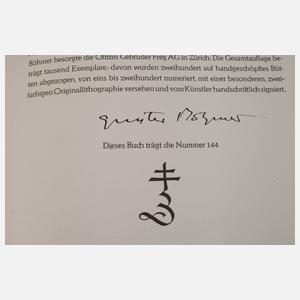 Böhmer besorgte die Offizin Gebrüder Fretz AG in Zürich. Die Gesamtauflage be-
trägt tausend Exemplare; davon wurden zweihundert auf handgeschöpftes Büt-
ten abgezogen, von eins bis zweihundert numeriert, mit einer besonderen, zwei-
farbigen Originallithographie versehen und vom Künstler handschriftlich signiert.
Gunter Böhmer
Dieses Buch trägt die Nummer 144